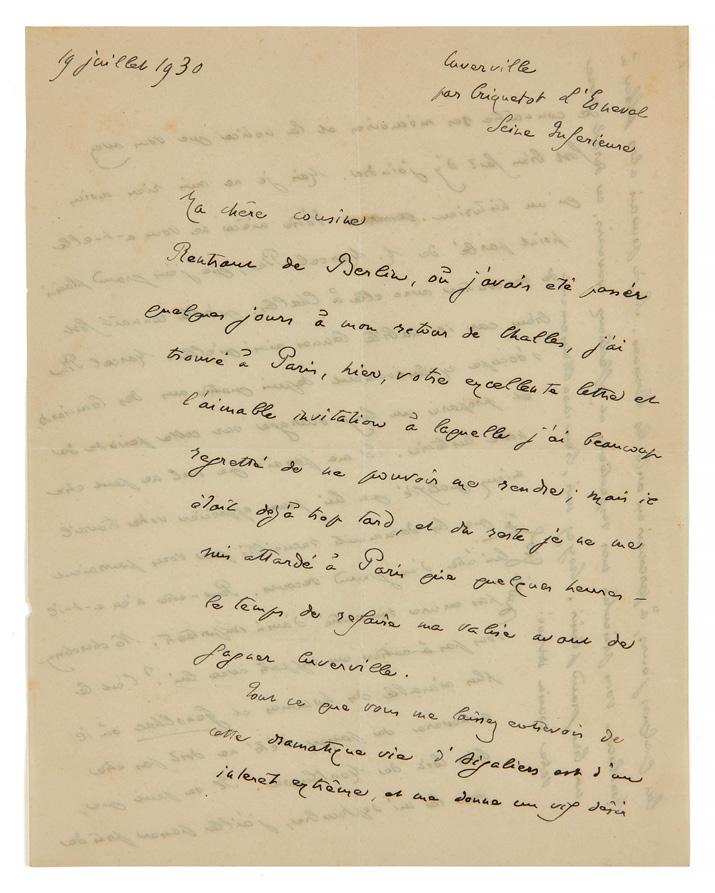 19 juillet 1930
Cuverville
par Criquetot d'Esneval
Seine Inferieure
Ma chère cousine
Rentrant de Berlin, où j'avais été passer
quelques jours à mon retour de Challes, j'ai
trouvé à Paris, hier, votre excellente lettre et
l'aimable invitation à laquelle j'ai beaucoup
regretté de ne pouvoir me rendre; mais il
était déjà trop tard, et du reste je ne me
suis attardé à Paris que quelques heures –
le temps de refaire ma valise avant de
gagner Cuverville.
Tout ce que vous me laissez entrevoir de
cette dramatique vie d'Aigaliers est d'un
interêt extrême, et me donne un vif désir